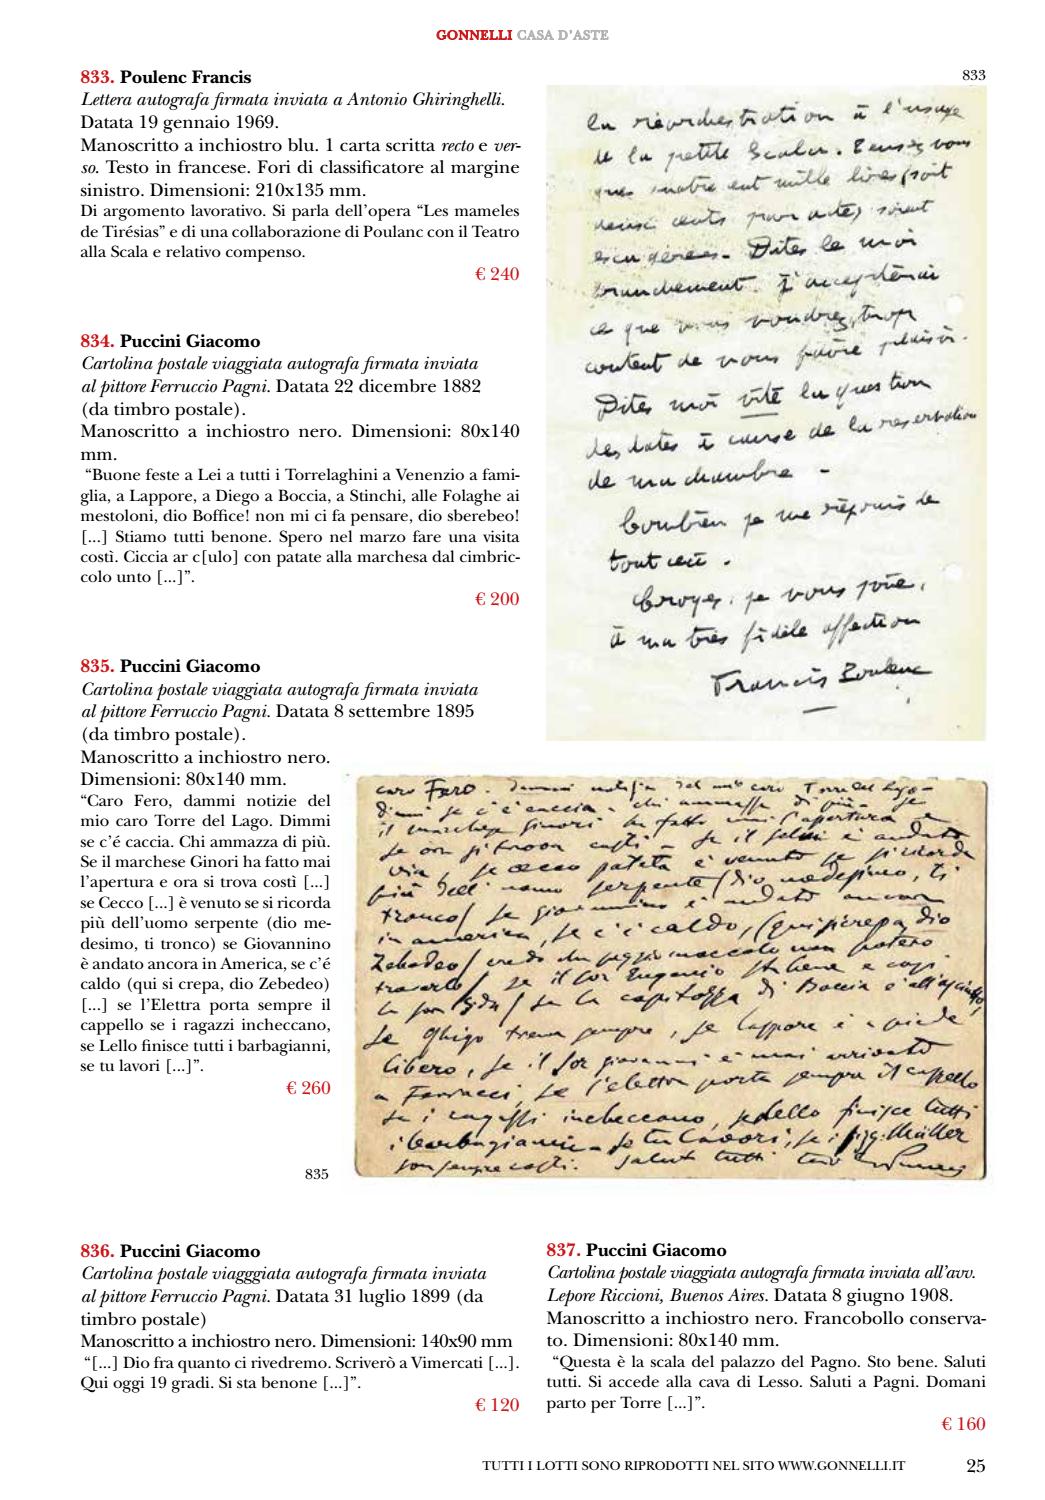 GONNELLI CASA D'ASTE
833. Poulenc Francis
Lettera autografa firmata inviata a Antonio Ghiringhelli.
Datata 19 gennaio 1969.
Manoscritto a inchiostro blu. 1 carta scritta recto e ver-
so. Testo in francese. Fori di classificatore al margine
sinistro. Dimensioni: 210x135 mm.
Di argomento lavorativo. Si parla dell'opera “Les mameles
de Tirésias” e di una collaborazione di Poulanc con il Teatro
alla Scala e relativo compenso.
€ 240
834. Puccini Giacomo
Cartolina postale viaggiata autografa firmata inviata
al pittore Ferruccio Pagni. Datata 22 dicembre 1882
(da timbro postale).
Manoscritto a inchiostro nero. Dimensioni: 80x140
mm.
“Buone feste a Lei a tutti i Torrelaghini a Venenzio a fami-
glia, a Lappore, a Diego a Boccia, a Stinchi, alle Folaghe ai
mestoloni, dio Boffice! non mi ci fa pensare, dio sberebeo!
[...] Stiamo tutti benone. Spero nel marzo fare una visita
costì. Ciccia ar c[ulo] con patate alla marchesa dal cimbric-
colo unto [...]”.
€ 200
835. Puccini Giacomo
Cartolina postale viaggiata autografa firmata inviata
al pittore Ferruccio Pagni. Datata 8 settembre 1895
(da timbro postale).
Manoscritto a inchiostro nero.
Dimensioni: 80x140 mm.
“Caro Fero, dammi notizie del
mio caro Torre del Lago. Dimmi
se c'é caccia. Chi ammazza di più.
Se il marchese Ginori ha fatto mai
l'apertura e ora si trova costì [...]
se Cecco [...] è venuto se si ricorda
più dell'uomo serpente (dio me-
desimo, ti tronco) se Giovannino
è andato ancora in America, se c'é
caldo (qui si crepa, dio Zebedeo)
[...] se l'Elettra porta sempre il
cappello se i ragazzi incheccano,
se Lello finisce tutti i barbagianni,
se tu lavori [...]”.
€ 260
833
la réorchestration à l'usage
de la petite Scala. Pensez vous
que quatre cent mille lires (soit
cents par acte) soient
exagérées. Dites le moi
franchement. J'accepterai
ce que vous voudrez, trop
content de vous faire plaisir.
Dites moi vite la question
des dates à cause de la reservation
de ma chambre -
Combien je me réjouis de
tout ceci.
Croyez, je vous prie,
à ma très fidèle affection
Francis Poulenc
caro Fero. Dammi notizie del mio caro Torre del Lago-
dimmi se c'é caccia. chi ammazza di più- se
il marchese Ginori ha fatto mai l'apertura e
se ora si trova costì - se il è andato
via, se Cecco pateta è venuto se si ricorda
più dell' uomo serpente (dio medesimo, ti
tronco) se Giovannino è andato ancora
in america, se c'é caldo, (qui si crepa, dio
Zebedeo) credo che peggio moccolo non potevo
trovarlo) se il Sor Eugenio sta bene e
se la capitozza di Boccia è all'
se Ghigo trema sempre, se Lappore è a piede
libero, se il Sor giovanni è mai arrivato
a se l'elettra porta sempre il cappello
se i ragazzi incheccano, se lello finisce tutti
i barbagianni - se tu lavori, se i sigg. Müller
son sempre costì. Saluti tutti tuo GPuccini
835
836. Puccini Giacomo
Cartolina postale viagggiata autografa firmata inviata
al pittore Ferruccio Pagni. Datata 31 luglio 1899 (da
timbro postale)
Manoscritto a inchiostro nero. Dimensioni: 140x90 mm
“[...] Dio fra quanto ci rivedremo. Scriverò a Vimercati [...].
Qui oggi 19 gradi. Si sta benone [...]”.
€ 120
837. Puccini Giacomo
Cartolina postale viaggiata autografa firmata inviata all'avv.
Lepore Riccioni, Buenos Aires. Datata 8 giugno 1908.
Manoscritto a inchiostro nero. Francobollo conserva-
to. Dimensioni: 80x140 mm.
“Questa è la scala del palazzo del Pagno. Sto bene. Saluti
tutti. Si accede alla cava di Lesso. Saluti a Pagni. Domani
parto per Torre [...]”.
€ 160
TUTTI I LOTTI SONO RIPRODOTTI NEL SITO WWW.GONNELLI.IT 25